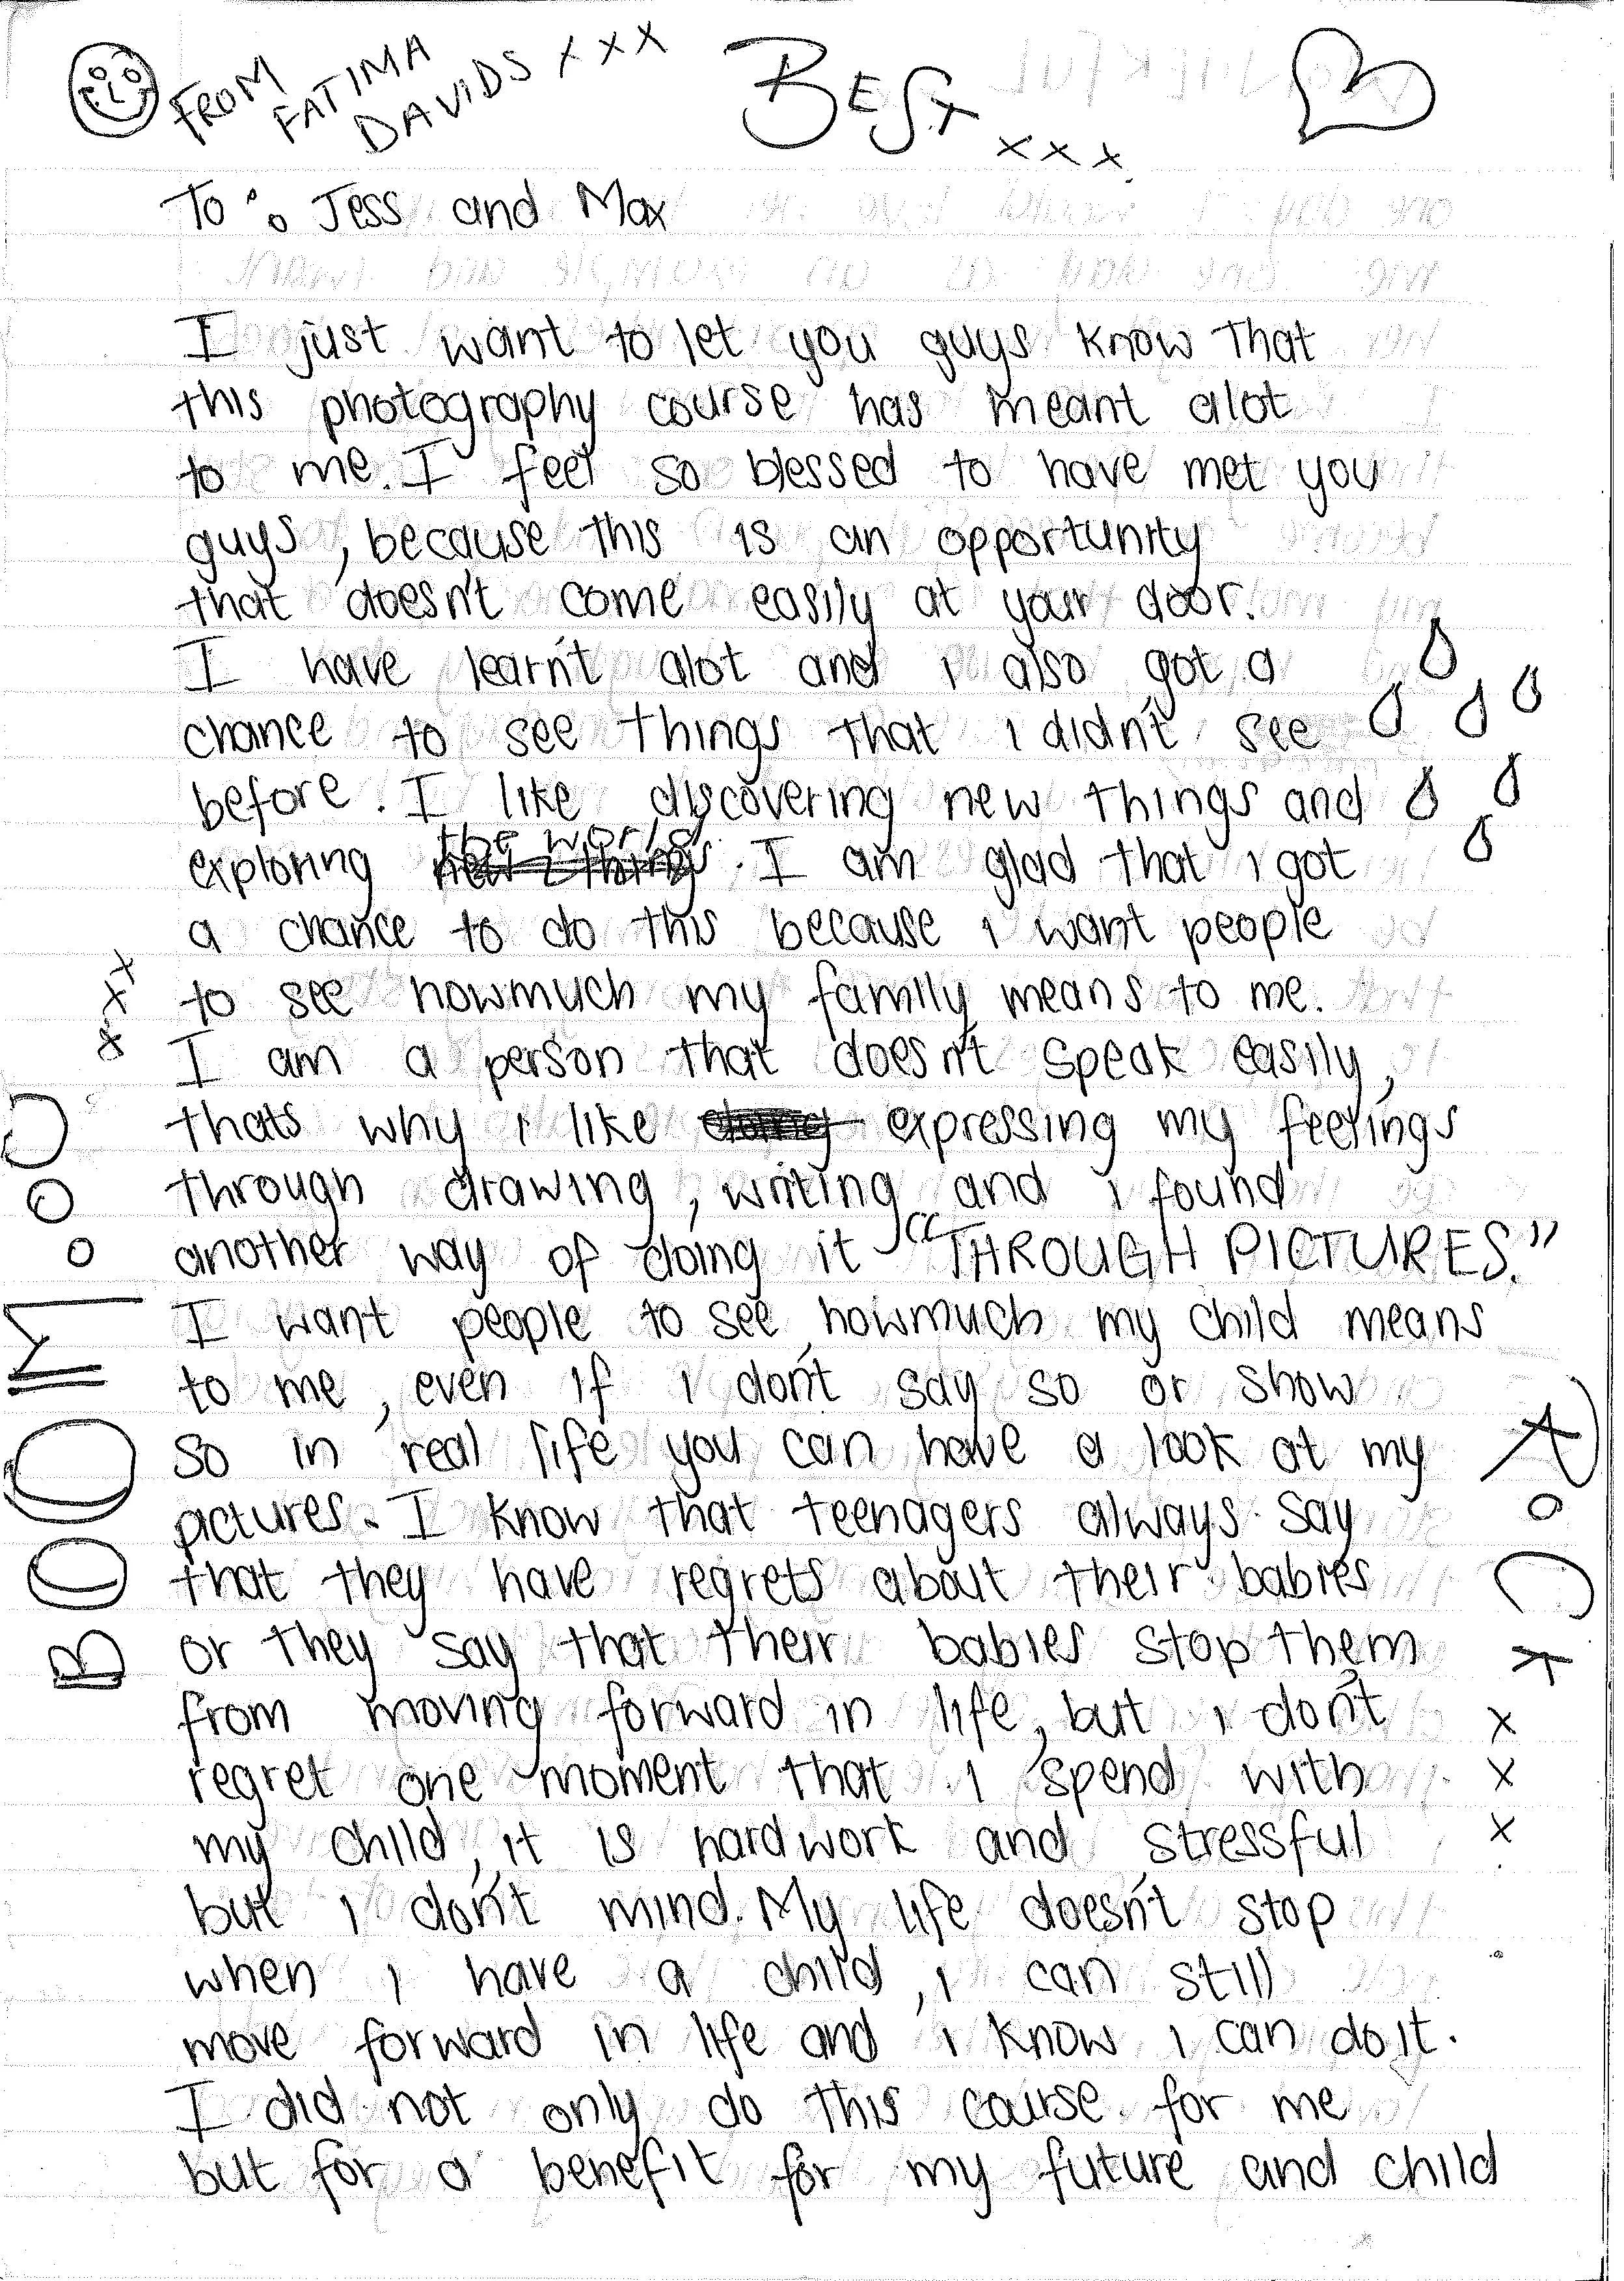 FROM
FATIMA
DAVIDS xxx
BEST
xxx
To: Jess and Max
I just want to let you guys know that
this photography course has meant alot
to me. I feel so blessed to have met you
guys, because this is an opportunity
that doesn't come easily at your door.
I have learn't alot and i also got a
chance to see things that i didn't see
before. I like discovering new things and
exploring the world. I am glad that i got
a chance to do this because i want people
to see howmuch my family means to me.
I am a person that doesn't speak easily,
thats why i like expressing my feelings
through drawing, writing and i found
another way of doing it "THROUGH PICTURES."
I want people to see howmuch my child means
to me, even if i don't say so or show
so in real life you can have a look at my
pictures. I know that teenagers always say
that they have regrets about their babies
or they say that their babies stop them
from moving forward in life, but i don't
regret one moment that i spend with
my child, it is hardwork and stressful
but i don't mind. My life doesn't stop
when i have a child, i can still
move forward in life and i know i can do it.
I did not only do this course for me
but for a benefit for my future and child
xxx
BOOM
xxx